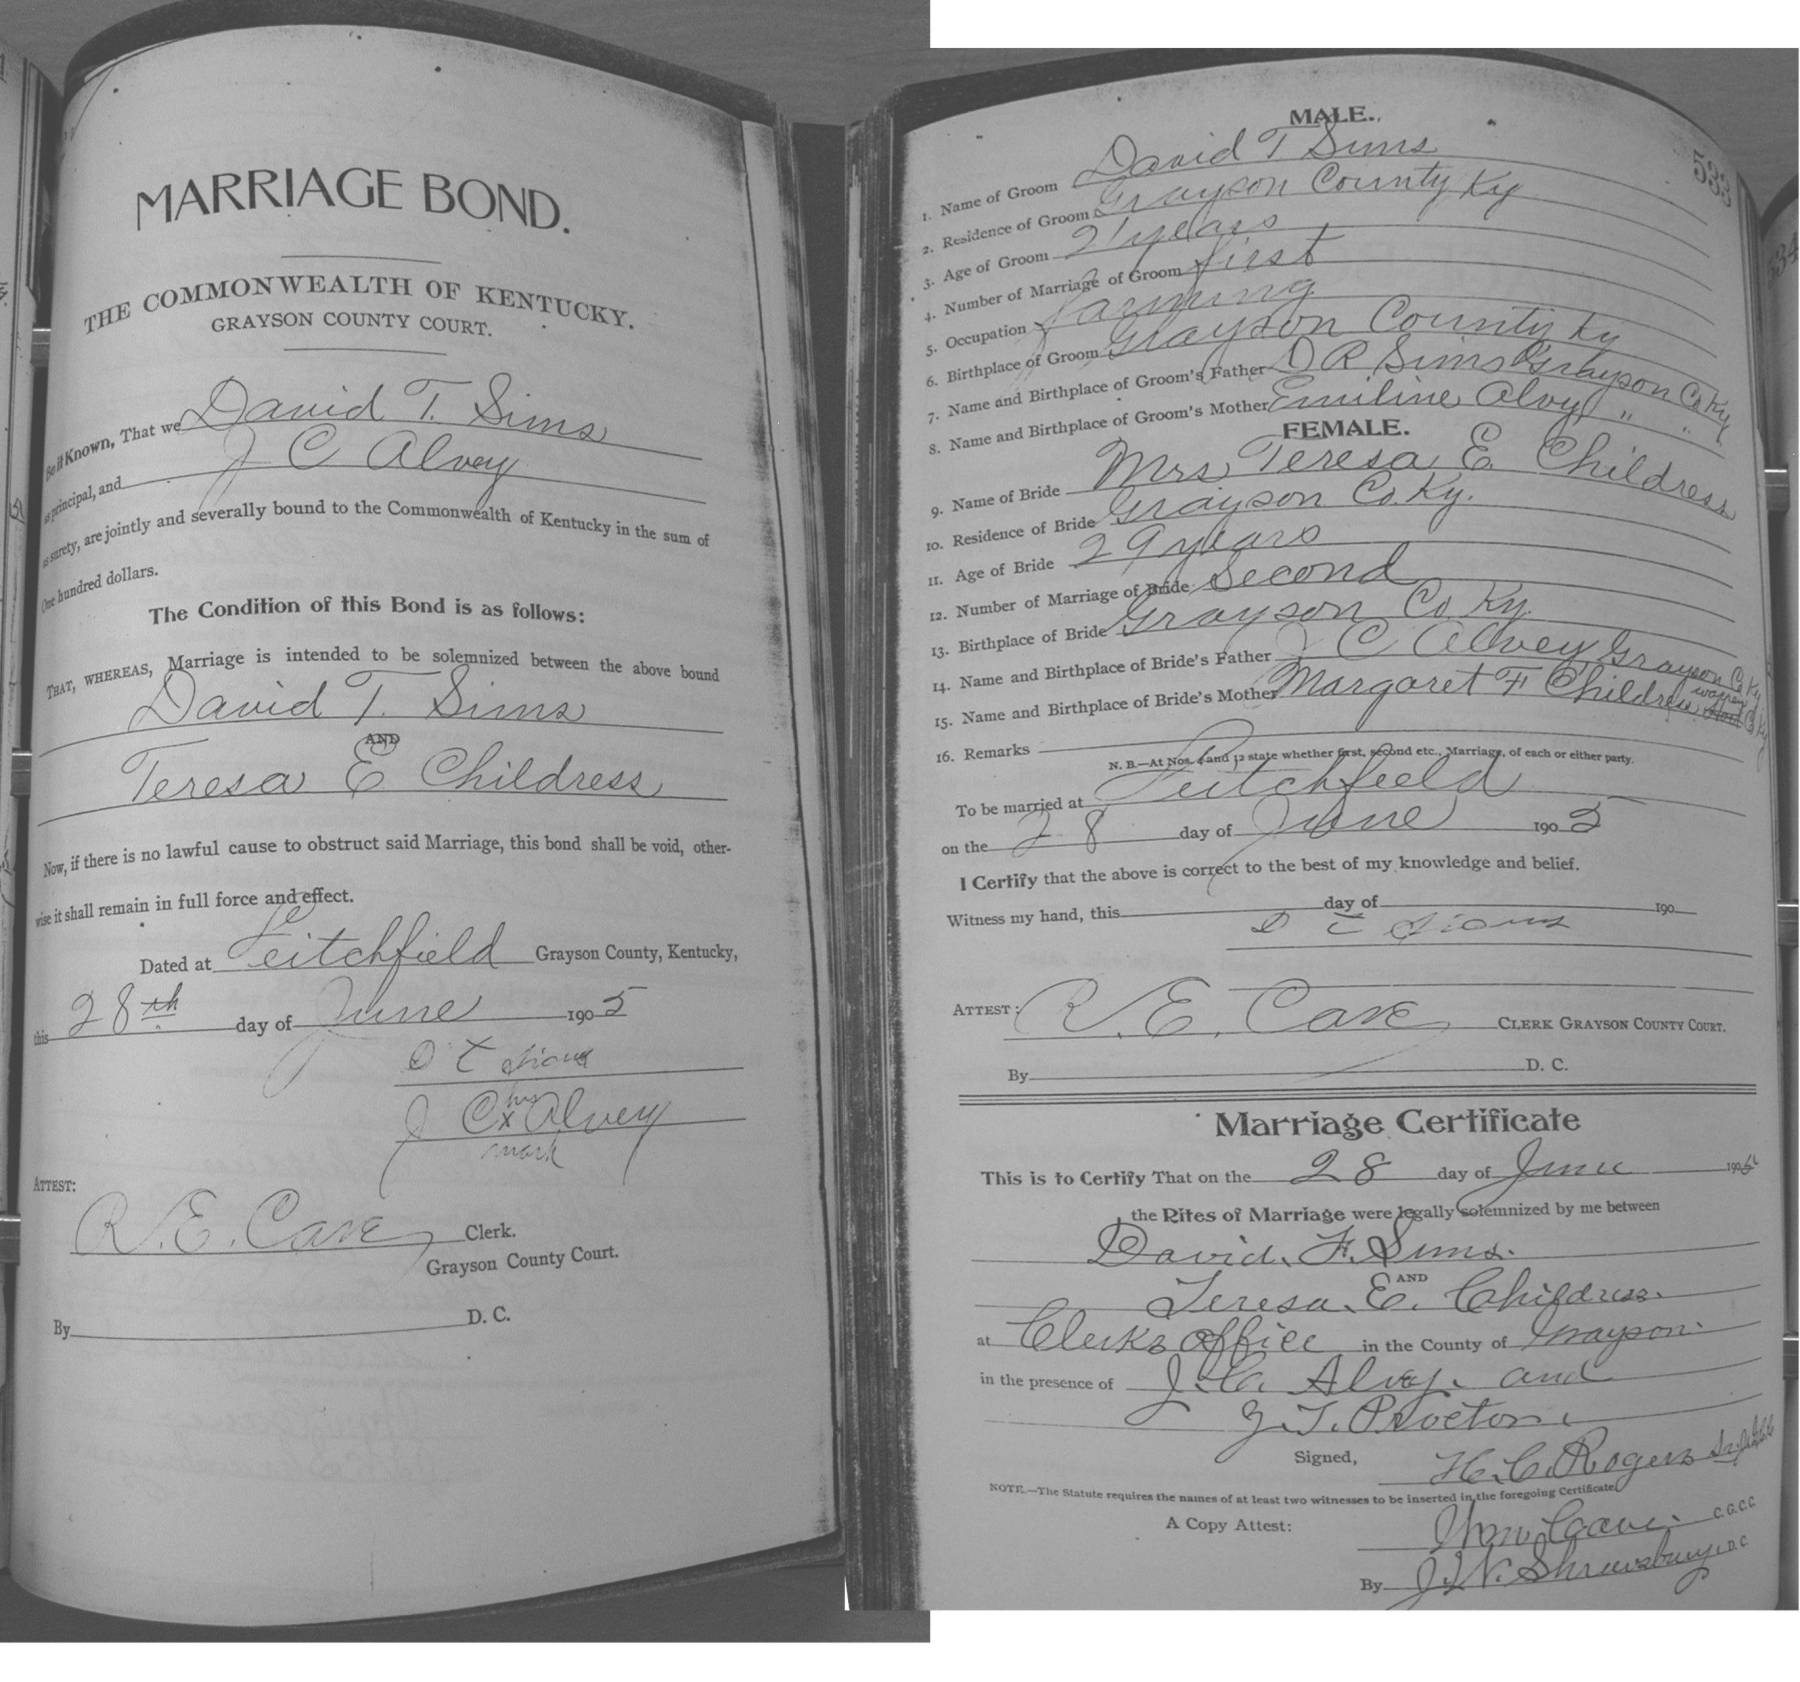 MARRIAGE BOND.
THE COMMONWEALTH OF KENTUCKY.
GRAYSON COUNTY COURT.
Be it Known, That we David T. Sims
as principal, and J C Alvey
as surety, are jointly and severally bound to the Commonwealth of Kentucky in the sum of
One hundred dollars.
The Condition of this Bond is as follows:
THAT, WHEREAS, Marriage is intended to be solemnized between the above bound
David T. Sims
AND
Teresa E Childress
Now, if there is no lawful cause to obstruct said Marriage, this bond shall be void, other-
wise it shall remain in full force and effect.
Dated at Leitchfield Grayson County, Kentucky,
this 28th day of June 1905
D T Sims
J C his x Alvey
mark
ATTEST:
R. E. Cave Clerk.
Grayson County Court.
By D. C.
533
MALE.
1. Name of Groom David T Sims
2. Residence of Groom Grayson County Ky
3. Age of Groom 21 years
4. Number of Marriage of Groom first
5. Occupation farming
6. Birthplace of Groom Grayson County Ky
7. Name and Birthplace of Groom's Father D R Sims Grayson Co Ky
8. Name and Birthplace of Groom's Mother Emiline Alvy " "
FEMALE.
9. Name of Bride Mrs Teresa E Childress
10. Residence of Bride Grayson Co. Ky.
11. Age of Bride 29 years
12. Number of Marriage of Bride Second
13. Birthplace of Bride Grayson Co Ky.
14. Name and Birthplace of Bride's Father J C Alvey Grayson Co Ky
15. Name and Birthplace of Bride's Mother Margaret F Childress warren Co Ky
16. Remarks
N. B.—At Nos. 4 and 12 state whether first, second etc., Marriage, of each or either party.
To be married at Leitchfield
on the 28 day of June 1905
I Certify that the above is correct to the best of my knowledge and belief.
Witness my hand, this day of 190
D T Sims
ATTEST: R. E. Cave CLERK GRAYSON COUNTY COURT.
By D. C.
Marriage Certificate
This is to Certify That on the 28 day of June 190
the Rites of Marriage were legally solemnized by me between
David. F. Sims.
AND
Teresa. E. Childress.
at Clerks office in the County of Grayson.
in the presence of J. C. Alvy. and
Z. T. Procton.
Signed, H. C. Rogers
NOTE.—The Statute requires the names of at least two witnesses to be inserted in the foregoing Certificate
A Copy Attest: Wm. Cave. C.G.C.C.
By J. W. Shrewsbury, D.C
534